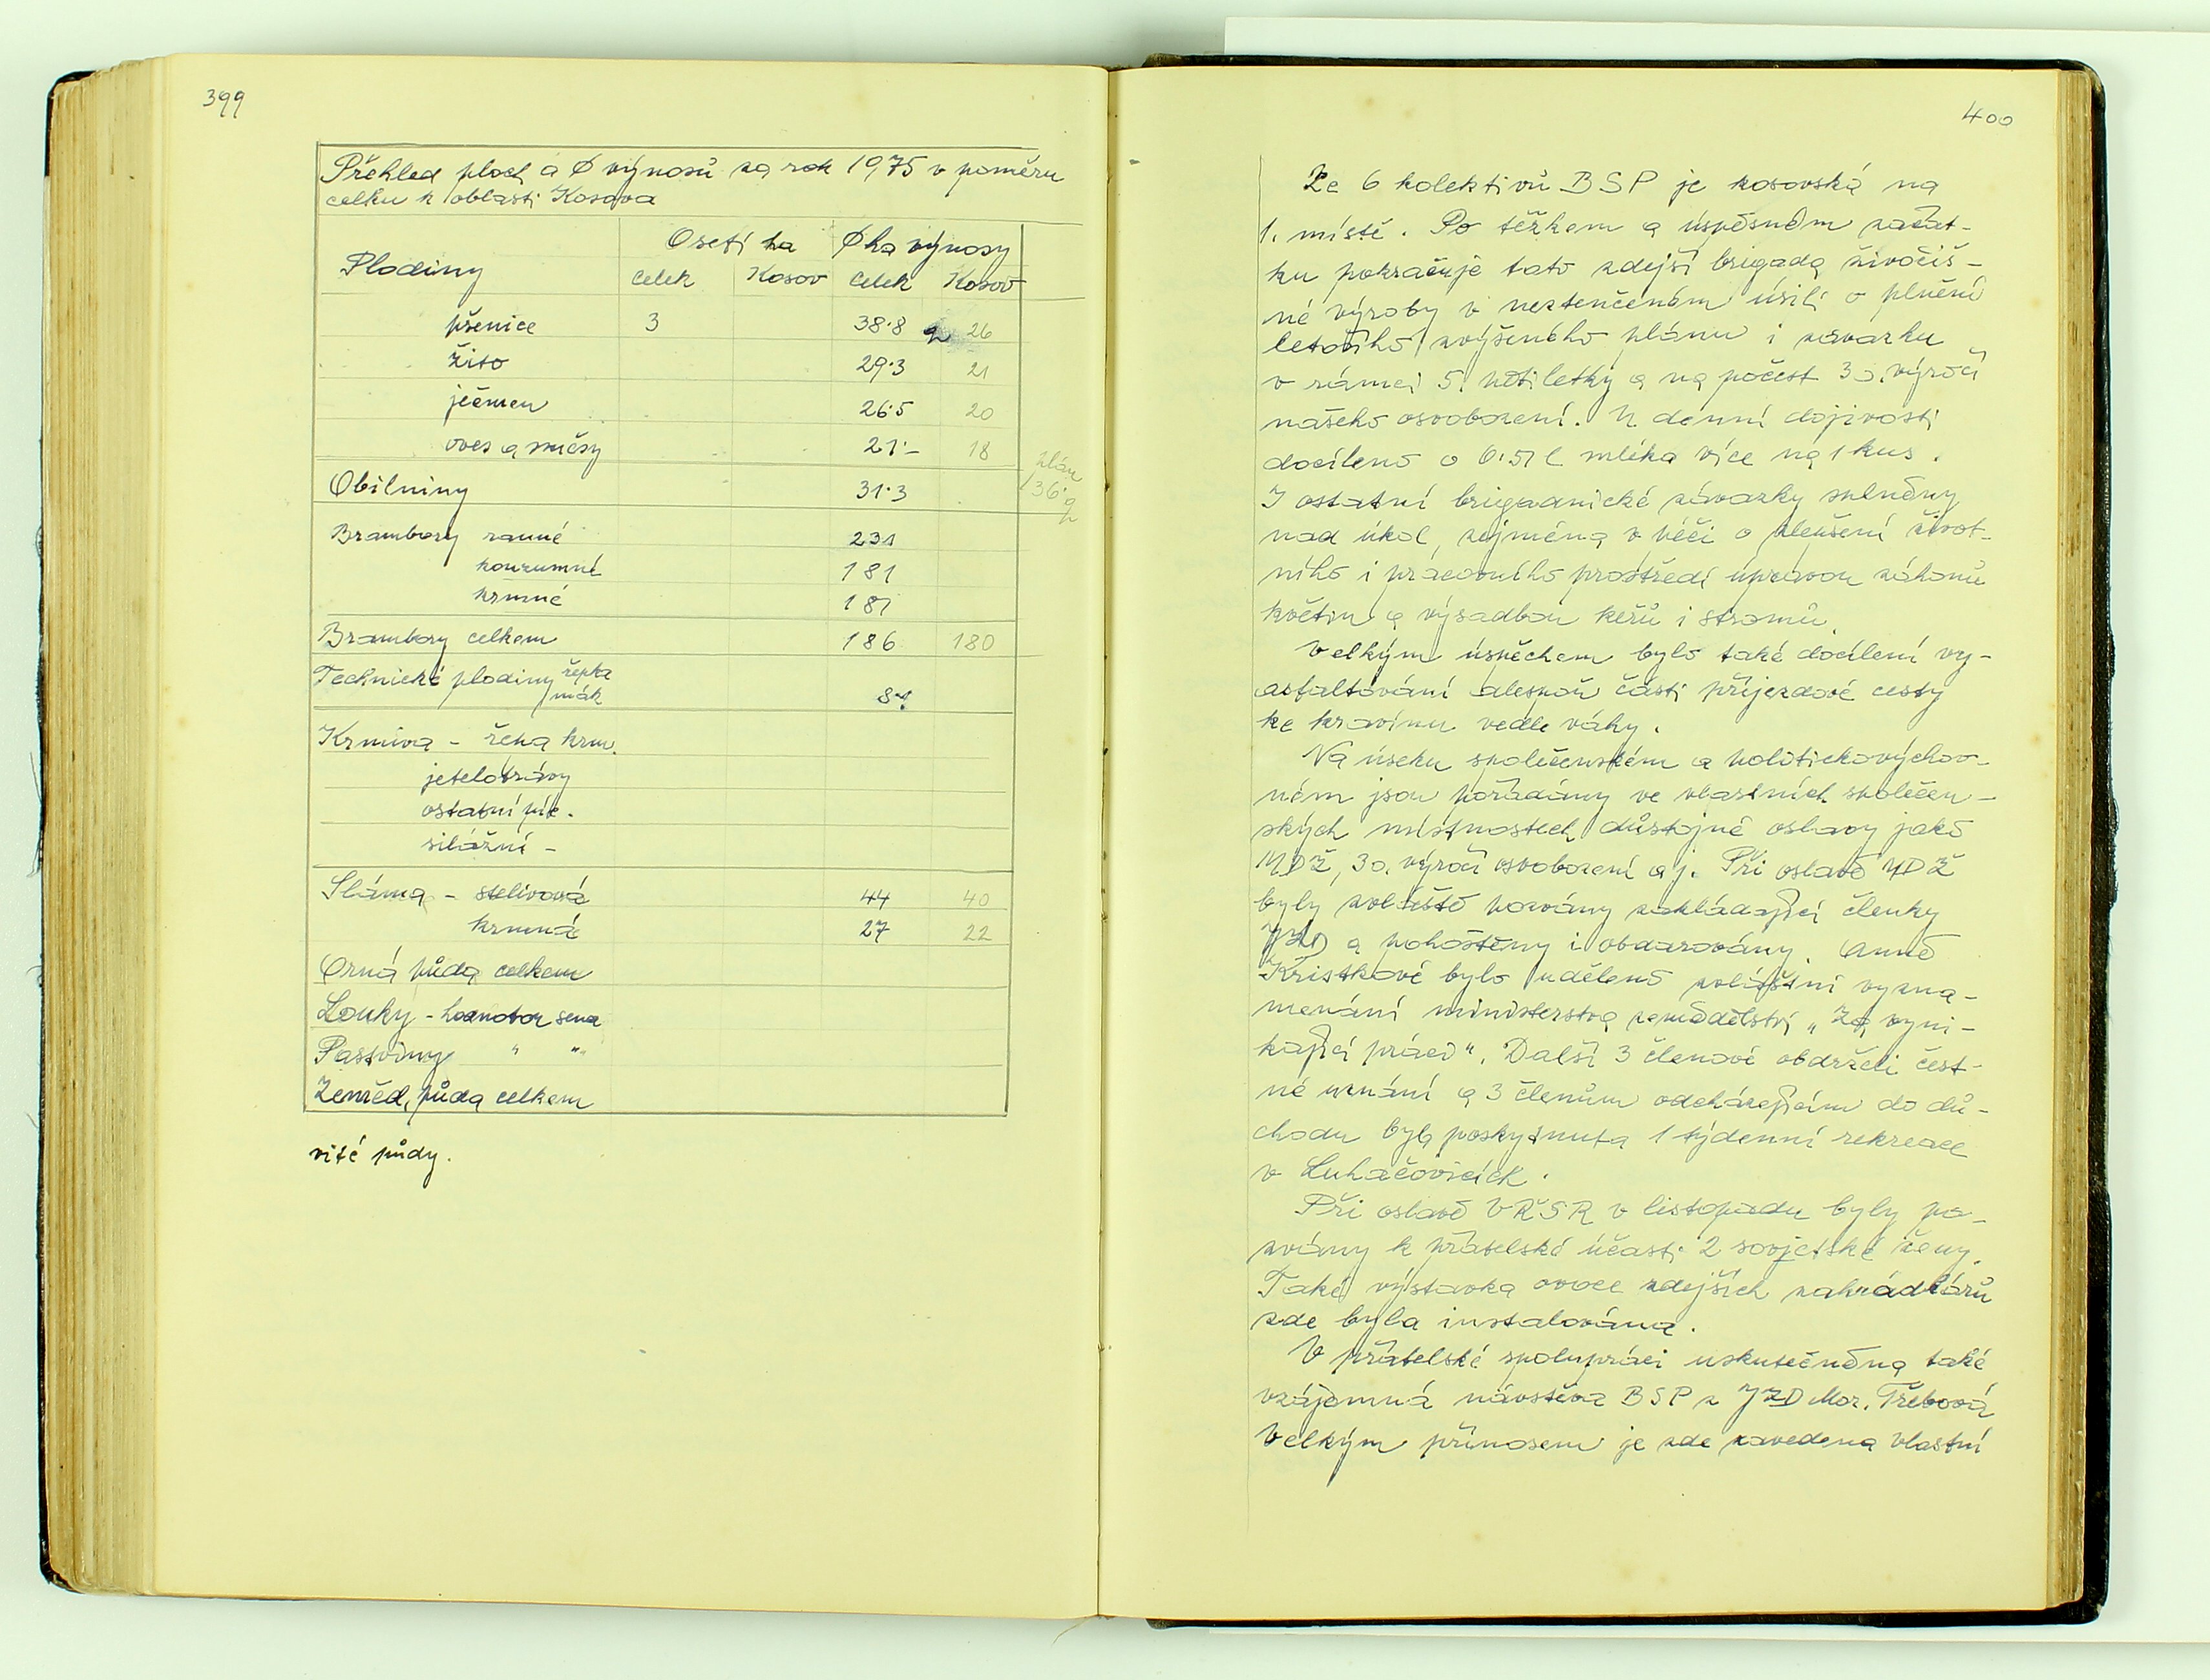 399
Přehled ploch a Ø výnosů za rok 1975 v poměru
celku k oblasti Kosova
Plodiny Osetí ha Ø ha výnosy
celek Kosov celek Kosov
pšenice 3 38·8 q 26
žito 29·3 21
ječmen 26·5 20
oves a směsy 21·- 18
Obilniny 31·3 plán 36·q
Brambory ranné 231
konzumní 181
krmné 181
Brambory celkem 186 180
Technické plodiny řepka
mák 8·1
Krmiva - řepa krm.
jetelotrávy
ostatní píc.
silážní -
Sláma - stelivová 44 40
krmná 27 22
Orná půda celkem
Louky - hodnotou sena
Pastviny " "
Zeměd. půda celkem
vité půdy.
400
Ze 6 kolektivů BSP je kosovská na
1. místě. Po těžkem a úspěsném začát-
ku pokračuje tato zdejší brigada živočiš-
né výroby v neztenčeném úsilí o plnění
letošího zvýšeného plánu i závazku
v rámci 5. pětiletky a na počest 30. výročí
našeho osvobození. U denní dojivosti
docíleno o 0·51 l mléka více na 1 kus.
I ostatní brigadnické závazky splněny
nad úkol, zejména v péči o zlepšení život-
ního i pracovního prostředí úpravou záhonů
květin a výsadbou keřů i stromů.
Velkým úspěchem bylo také docílení vy-
asfaltování alespoň části příjezdové cesty
ke kravínu vedle váhy.
Na úseku společenském a politickovýchov-
ném jsou pořádány ve vlastních společen-
ských místnostech důstojné oslavy jako
MDŽ, 30. výročí osvobození aj. Při oslavě MDŽ
byly zvláště pozvány zakládající členky
JZD a pohoštěny i obdarovány. Anně
Křistkové bylo uděleno zvláštní vyzna-
menání ministerstva zemědělství „Za vyni-
kající práci". Další 3 členové obdrželi čest-
né uznání a 3 členům odcházejícím do dů-
chodu byla poskytnuta 1 týdenní rekreace
v Luhačovicích.
Při oslavě VŘSR v listopadu byly po-
zvány k přátelské účasti 2 sovjetské ženy.
Také výstavka ovoce zdejších zahrádkářů
zde byla instalována.
V přátelské spolupráci uskutečněna také
vzájemná návstěva BSP z JZD Mor. Třebová
Velkým přínosem je zde zavedena vlastní